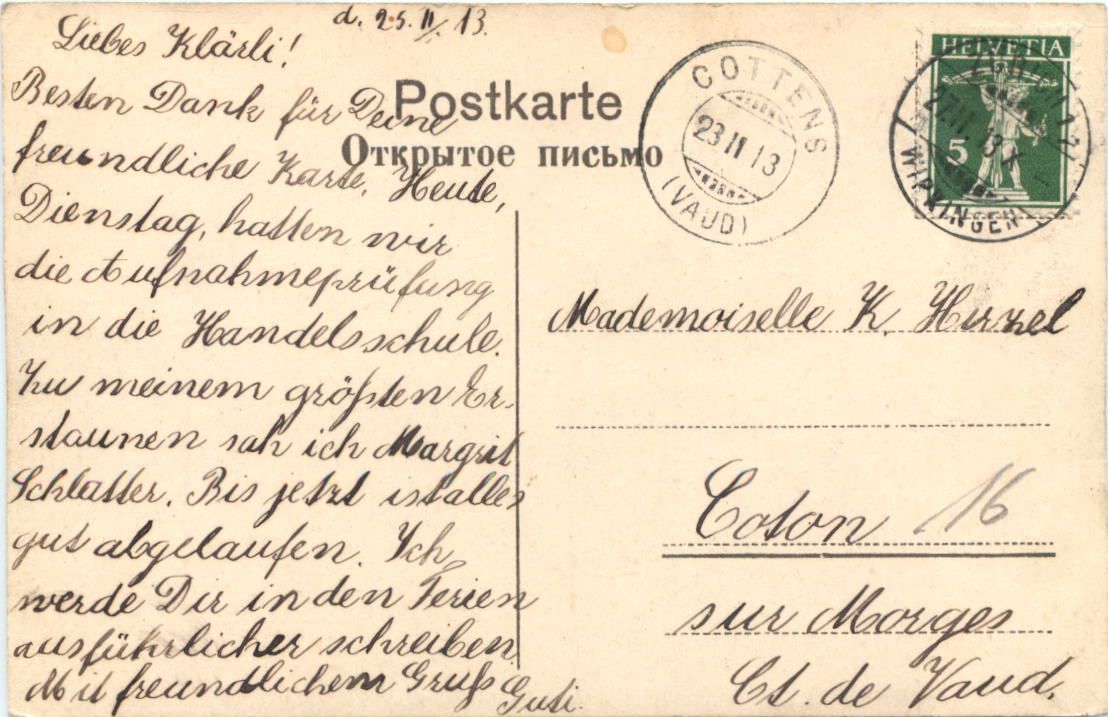 d. 25. II. 13.
Liebes Klärli!
Besten Dank für Deine
freundliche Karte. Heute,
Dienstag, hatten wir
die Aufnahmeprüfung
in die Handelsschule.
Zu meinem größten Er-
staunen sah ich Margrit
Schlatter. Bis jetzt ist alles
gut abgelaufen. Ich
werde Dir in den Ferien
ausführlicher schreiben.
Mit freundlichem Gruß
Guti.
Postkarte
Открытое письмо
COTTENS
23 II 13
(VAUD)
HELVETIA
5
WIPKINGEN
Mademoiselle K. Hirzel
Coton 16
sur Morges
Ct. de Vaud.